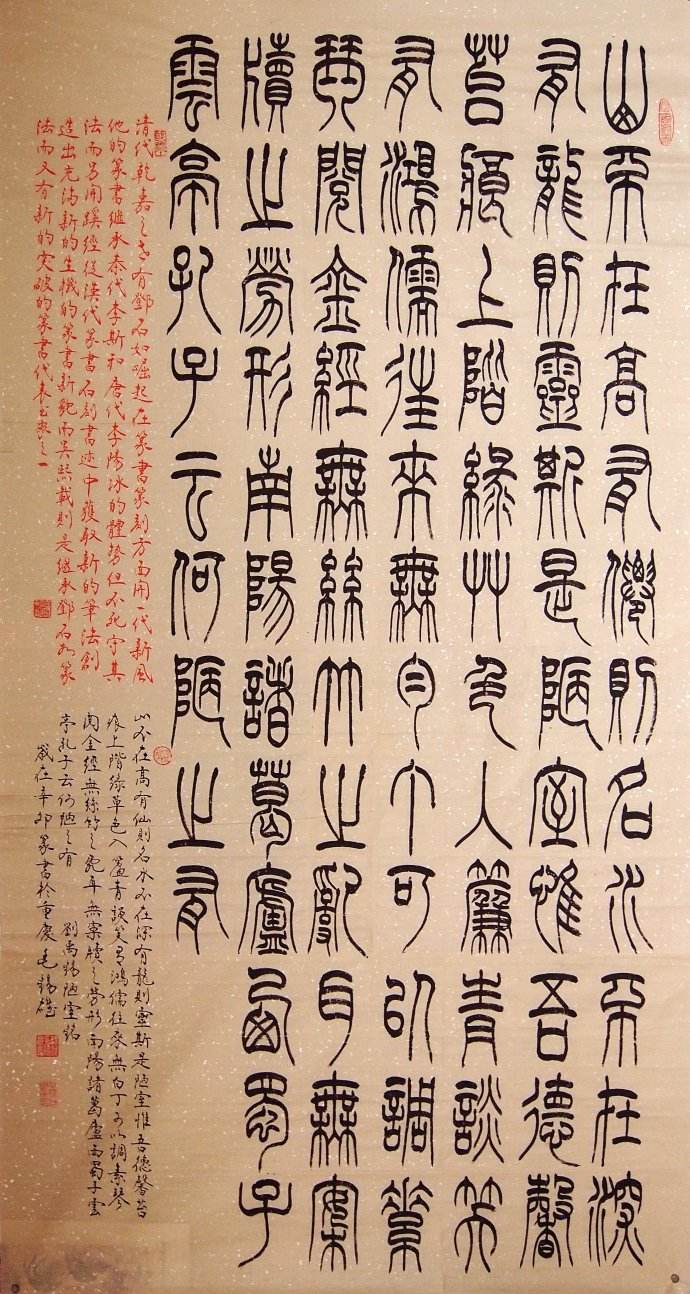 山不在高有僊則名水不在深
有龍則靈斯是陋室惟吾德馨
苔痕上階綠艸色入簾青談笑
有鴻儒往來無白丁可以調素
琴閱金經無絲竹之亂耳無案
牘之勞形南陽諸葛廬西蜀子
雲亭孔子云何陋之有
清代乾嘉之世有鄧石如崛起在篆書篆刻方面開一代新風
他的篆書繼承秦代李斯和唐代李陽冰的體勢但不死守其
法而另開蹊徑從漢代篆書石刻書迹中獲取新的筆法創
造出充滿新的生機的篆書新貌而吳熙載則是繼承鄧石如篆
法而又有新的突破的篆書代表書家之一
山不在高有仙則名水不在深有龍則靈斯是陋室惟吾德馨苔
痕上階綠草色入簾青談笑有鴻儒往來無白丁可以調素琴
閱金經無絲竹之亂耳無案牘之勞形南陽諸葛廬西蜀子雲
亭孔子云何陋之有 劉禹錫陋室銘
歲在辛卯篆書於重慶毛錫